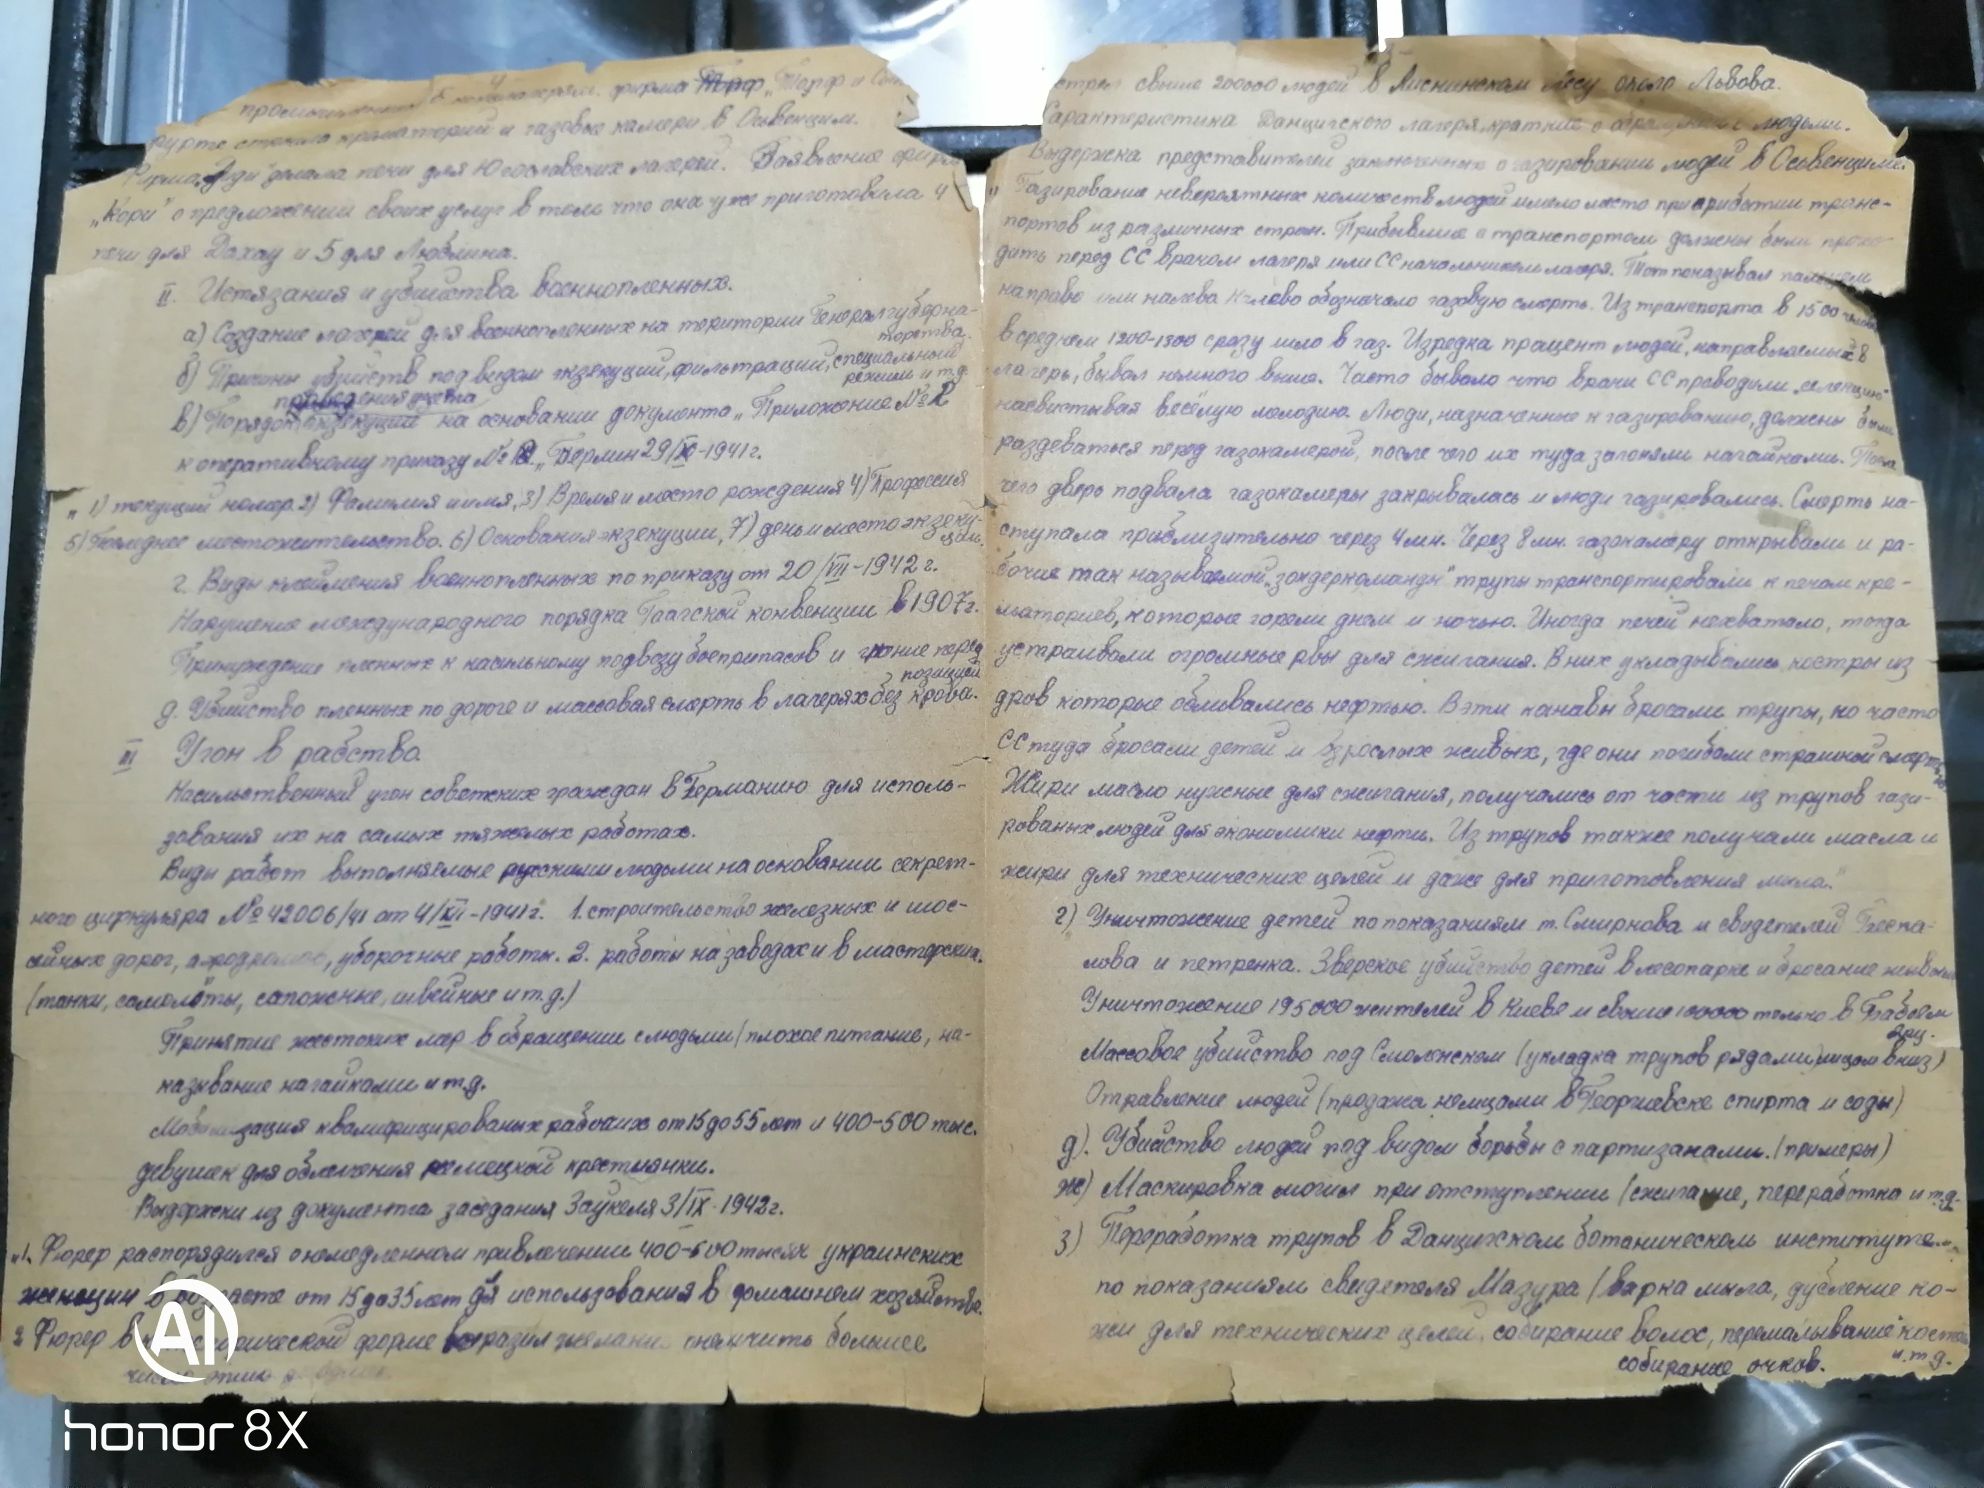 4
промышленных концлагерям. фирма "Топф и Сын
фурте строила крематории и газовые камеры в Освенцим.
Фирма "Диди" делала печи для Югославских лагерей. Заявление фирмы
"Кори" о предложении своих услуг в том что она уже приготовила 4
печи для Дахау и 5 для Люблина.
II. Истязания и убийства военнопленных.
а) Создание лагерей для военнопленных на територии Генералгуберна-
торства.
б) Причины убийств под видом экзекуций, фильтраций, специальный
режим и т.д.
проведения учета
в) Порядок экзекуций на основании документа "Приложение № 2
к оперативному приказу № "Берлин 29/X-1941 г.
" 1) текущий номер 2) Фамилия и имя, 3) Время и место рождения 4) Профессия
5) Последнее местожительство. 6) Основания экзекуции, 7) день и место экзеку-
ции.
г. Виды клеймения военнопленных по приказу от 20/VII-1942 г.
Нарушение международного порядка Гаагской конвенции в 1907 г.
Принуждение пленных к насильному подвозу боеприпасов и гоние перед
позицией
д. Убийство пленных по дороге и массовая смерть в лагерях без крова.
III Угон в рабство.
Насильственный угон советских граждан в Германию для исполь-
зования их на самых тяжелых работах.
Виды работ выполняемые русскими людьми на основании секрет-
ного циркуляра № 42006/41 от 4/XII-1941 г. 1. строительство железных и шос-
сейных дорог, аэродромов, уборочные работы. 2. работы на заводах и в мастерских.
(танки, самолёты, сапожные, швейные и т.д.)
Принятие жестоких мер в обращении с людьми (плохое питание, на-
казывание нагайками и т.д.
Мобилизация квалифицированых рабочих от 15 до 55 лет и 400-500 тыс.
девушек для облегчения немецкой крестьянки.
Выдержки из документа заседания Заукеля 3/IX-1942 г.
"1. Фюрер распорядился о немедленном привлечении 400-500 тысяч украинских
женщин в возрасте от 15 до 35 лет для использования в домашнем хозяйстве.
2 Фюрер в форме выразил желание онемечить большее
число этих
стрел свыше 200000 людей в Лиснинском лесу около Львова.
Характеристика Данцигского лагеря, краткие о людьми.
Выдержка представителей заключенных о газировании людей в Освенциме.
" Газирование невероятных количеств людей имело место при прибытии транс-
портов из различных стран. Прибывшие с транспортом должны были прохо-
дить перед СС врачом лагеря или СС начальником лагеря. Тот показывал пальцем
направо или налево налево обозначало газовую смерть. Из транспорта в 1500 человек
в среднем 1200-1300 сразу шло в газ. Изредка працент людей, направляемых в
лагерь, бывал немного выше. Часто бывало что врачи СС проводили "селекцию"
насвистывая весёлую мелодию. Люди, назначенные к газированию, должны были
раздеваться перед газокамерой, после чего их туда загоняли нагайками. После
чего дверь подвала газокамеры закрывалась и люди газировались. Смерть на-
ступала приблизительно через 4 мн. Через 8 мн. газокамеру открывали и ра-
бочие так называемой "зондеркоманды" трупы транспортировали к печам кре-
маториев, которые горели днем и ночью. Иногда печей нехватало, тогда
устраивали огромные рвы для сжигания. В них укладывались костры из
дров которые обливались нефтью. В эти канавы бросали трупы, но часто
СС туда бросали детей и взрослых живых, где они погибали страшной смертью
Жиры масло нужные для сжигания, получались от части из трупов гази-
рованых людей для экономики нефти. Из трупов также получали масла и
жиры для технических целей и даже для приготовления мыла."
г) Уничтожение детей по показаниям т. Смирнова и свидетелей Беспа-
лова и петренка. Зверское убийство детей в лесопарке и бросание живьем
Уничтожение 195000 жителей в Киеве и свыше 100000 только в Бабьем
яру.
Массовое убийство под Смоленском (укладка трупов рядами, лицом вниз)
Отравление людей (продажа немцами в Георгиевске спирта и соды)
д). Убийство людей под видом борьбы с партизанами. (примеры)
ж) Маскировка могил при отступлении (сжигание, переработка и т.д.
з) Переработка трупов в Данцихском ботаническом институте...
по показаниям свидетеля Мазура (варка мыла, дубление ко-
жи для технических целей, собирание волос, перемалывание костей
собирание очков. и т.д.
AI
honor 8X